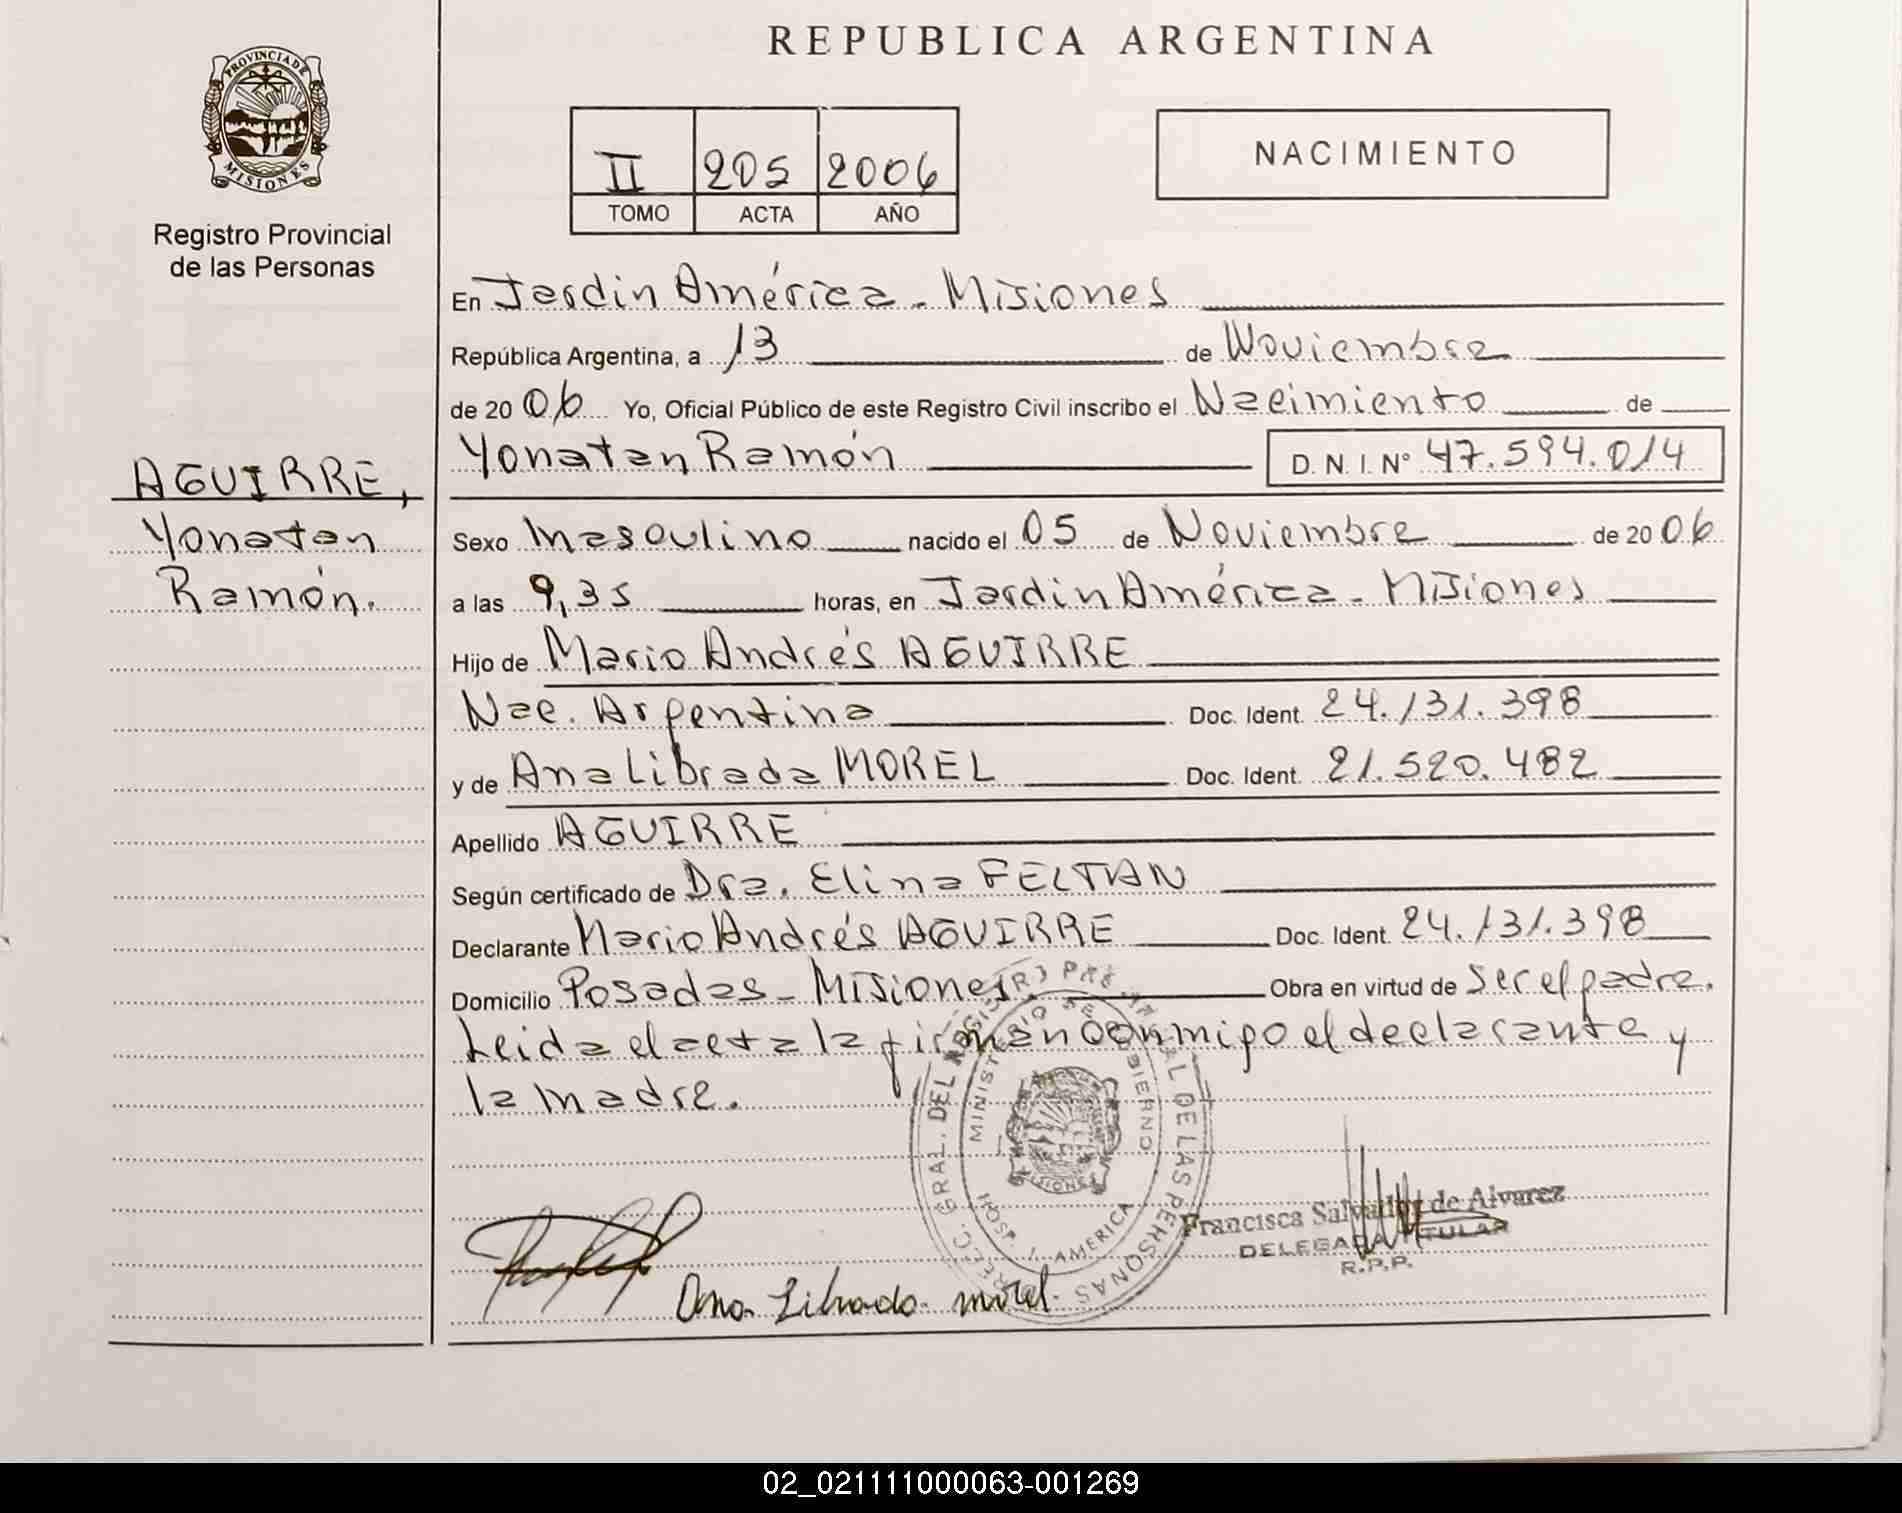 REPUBLICA ARGENTINA
PROVINCIA DE
MISIONES
Registro Provincial
de las Personas
II 205 2006
TOMO ACTA AÑO
NACIMIENTO
En Jardin América - Misiones
República Argentina, a 13 de Noviembre
de 20 06 Yo, Oficial Público de este Registro Civil inscribo el Nacimiento de
Yonatan Ramón D. N. I. N° 47.594.014
AGUIRRE,
Yonatan
Ramón.
Sexo masculino nacido el 05 de Noviembre de 20 06
a las 9,35 horas, en Jardin América - Misiones
Hijo de Mario Andrés AGUIRRE
Nac. Argentina Doc. Ident. 24.131.398
y de Ana Librada MOREL Doc. Ident. 21.520.482
Apellido AGUIRRE
Según certificado de Dra. Elina FELTAN
Declarante Mario Andrés AGUIRRE Doc. Ident. 24.131.398
Domicilio Posadas - Misiones. Obra en virtud de ser el padre.
Leida el acta la firman conmigo el declarante y
la madre.
GRAL. DEL REGISTRO DE LAS PERSONAS
MINISTERIO DE GOBIERNO
MISIONES
AMERICA
Francisca Salvador de Alvarez
DELEGADA TITULAR
R.P.P.
Ana Librada morel
02_021111000063-001269